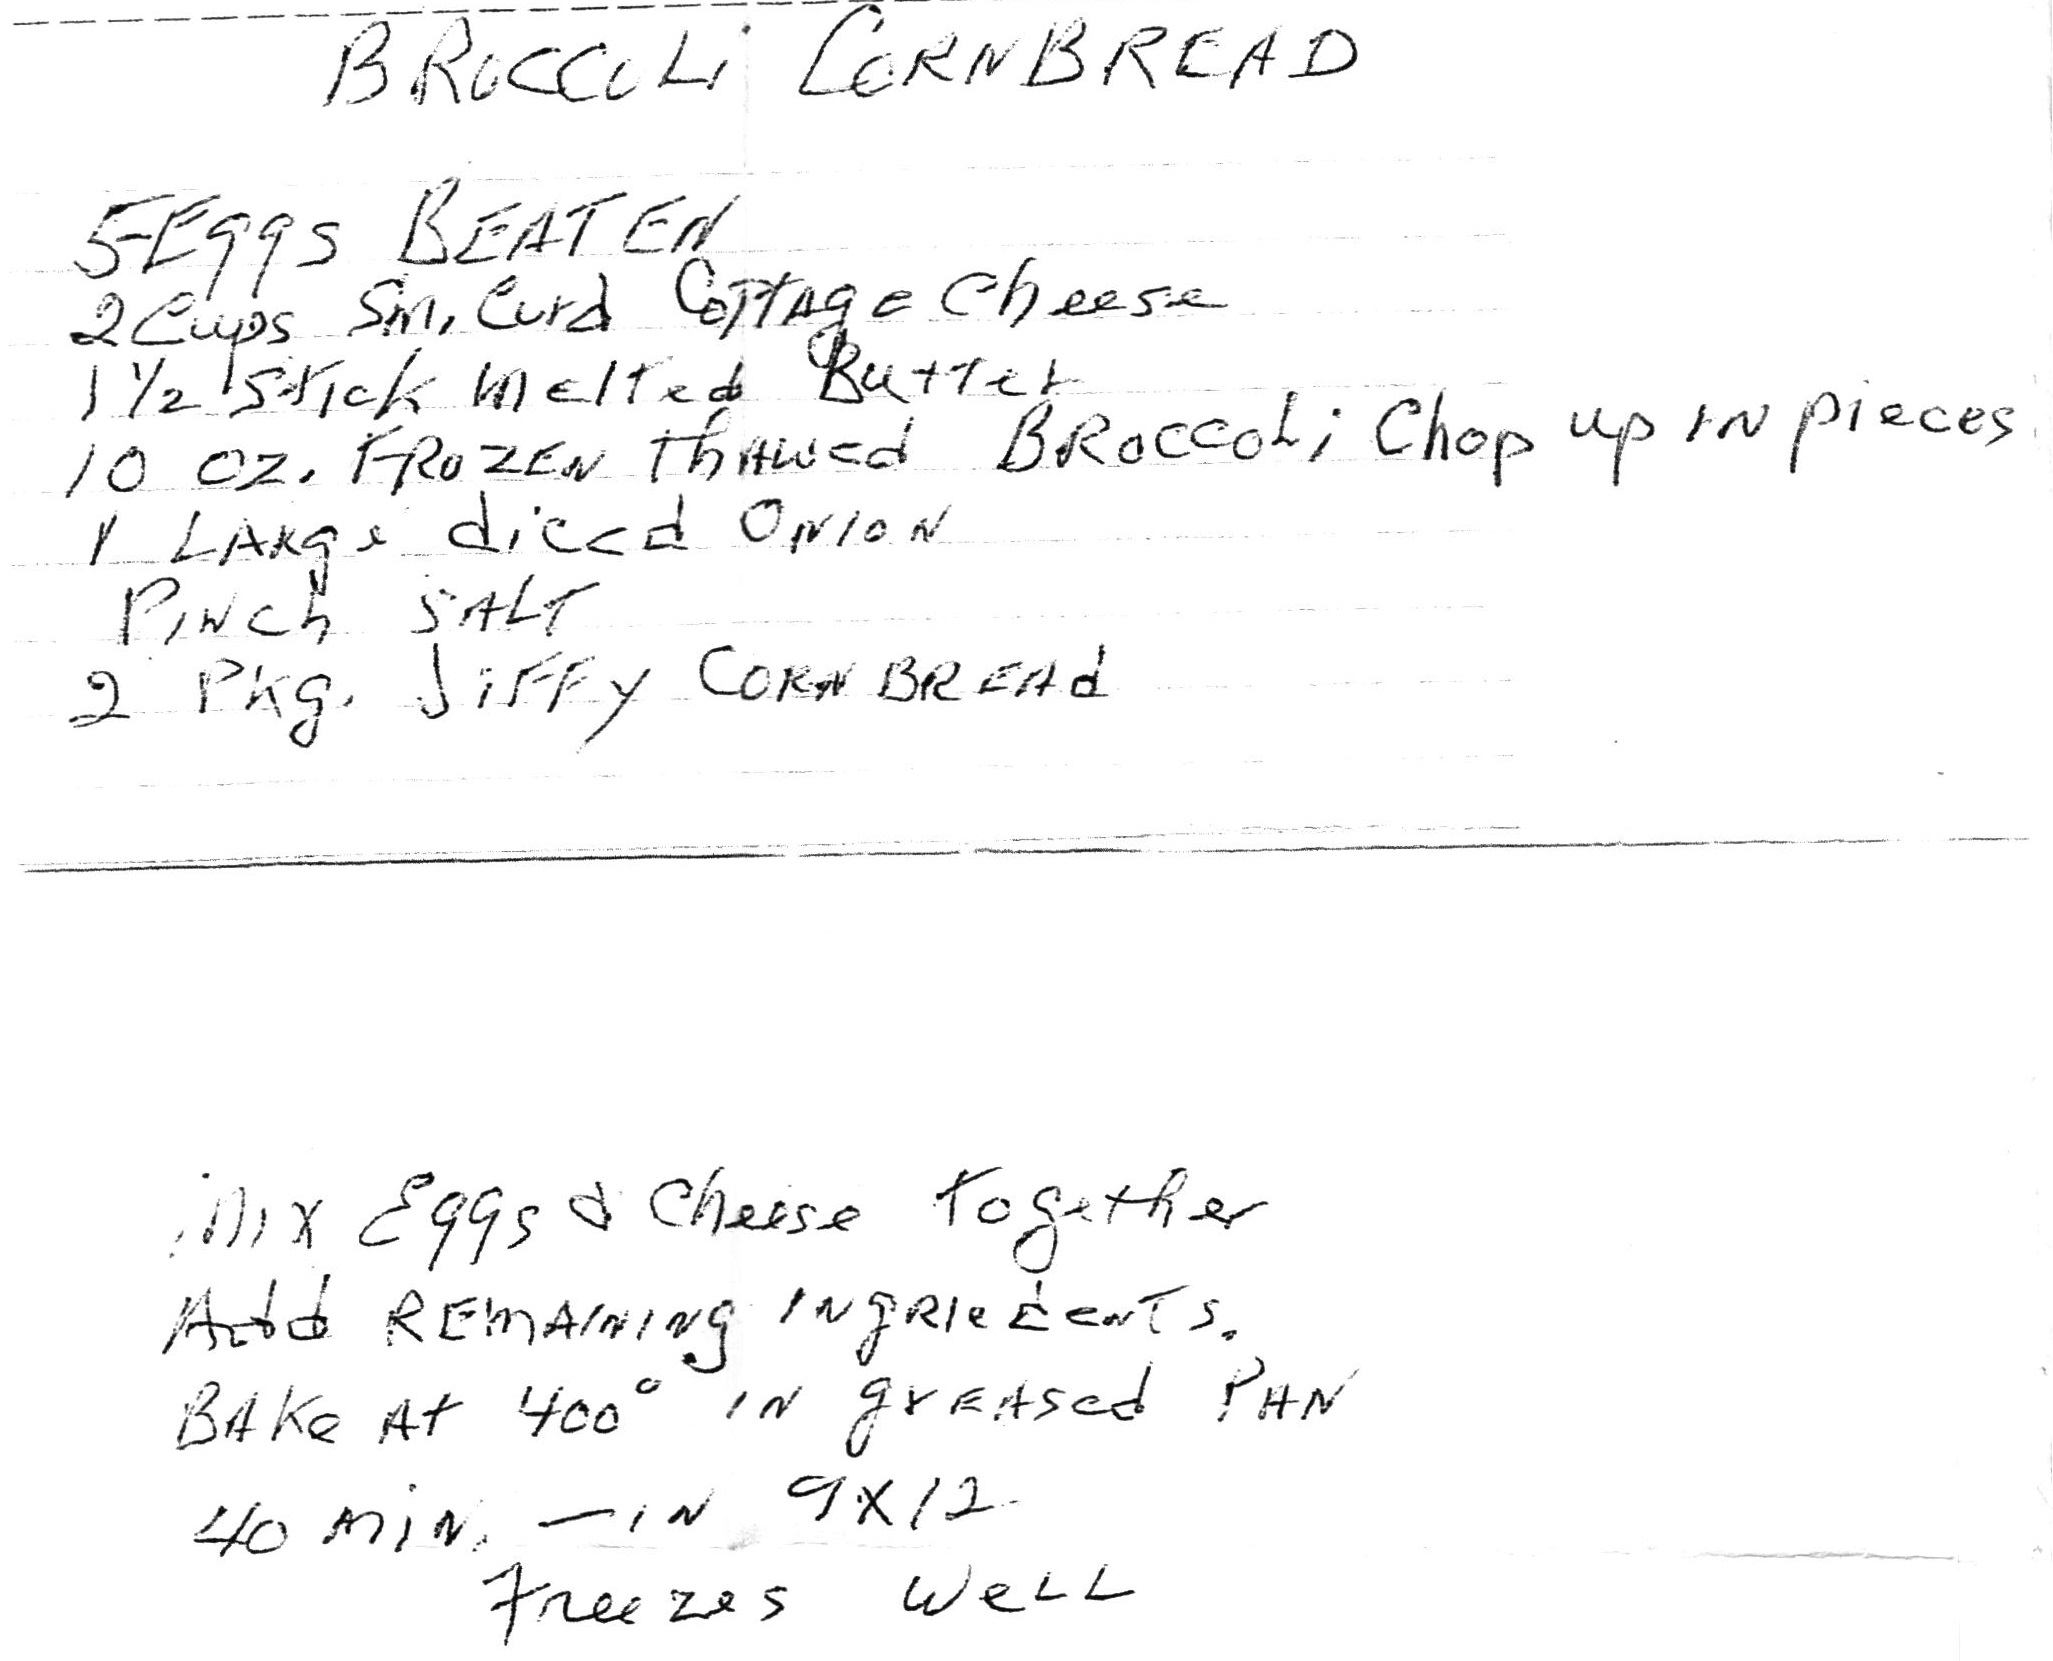 BROCCOLi CORNBREAD
5 Eggs BEATEN
2 Cups Sm. Curd Cottage Cheese
1 1/2 Stick Melted Butter
10 oz. FROZEN thAWed BROCCOLi Chop up IN pieces
1 LARge diced ONION
PiNch SALT
2 Pkg. JiFFy CORN BREAd
Mix Eggs & Cheese Together
Add REMAINING INgRIedenTs.
BAKe At 400° IN greased PAN
40 MiN. - IN 9X12
Freezes WeLL